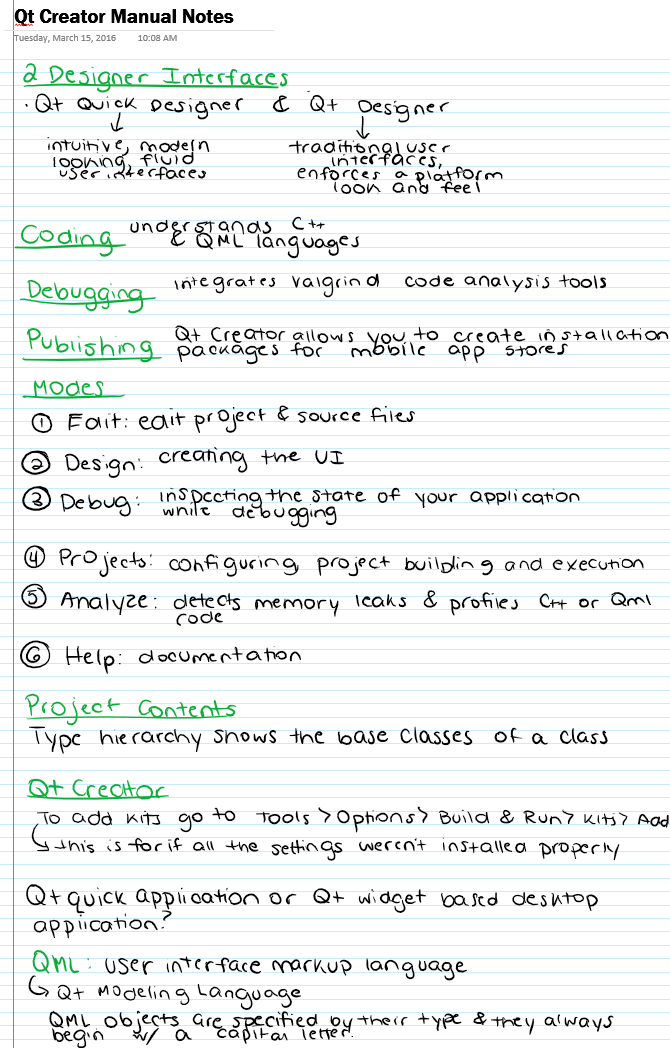 Qt Creator Manual Notes
Tuesday, March 15, 2016 10:08 AM
2 Designer Interfaces
· Qt Quick Designer & Qt Designer
intuitive, modern looking, fluid user interfaces
traditional user interfaces, enforces a platform look and feel
Coding understands C++
& QML languages
Debugging integrates valgrind code analysis tools
Publishing Qt Creator allows you to create installation
packages for mobile app stores
Modes
① Edit: edit project & source files
② Design: creating the UI
③ Debug: inspecting the state of your application
while debugging
④ Projects: configuring project building and execution
⑤ Analyze: detects memory leaks & profiles C++ or Qml
code
⑥ Help: documentation
Project Contents
Type hierarchy shows the base classes of a class
Qt Creator
To add kits go to Tools > Options > Build & Run > Kits > Add
this is for if all the settings weren't installed properly
Qt quick application or Qt widget based desktop
application?
QML: user interface markup language
Qt Modeling Language
QML objects are specified by their type & they always
begin w/ a capital letter.